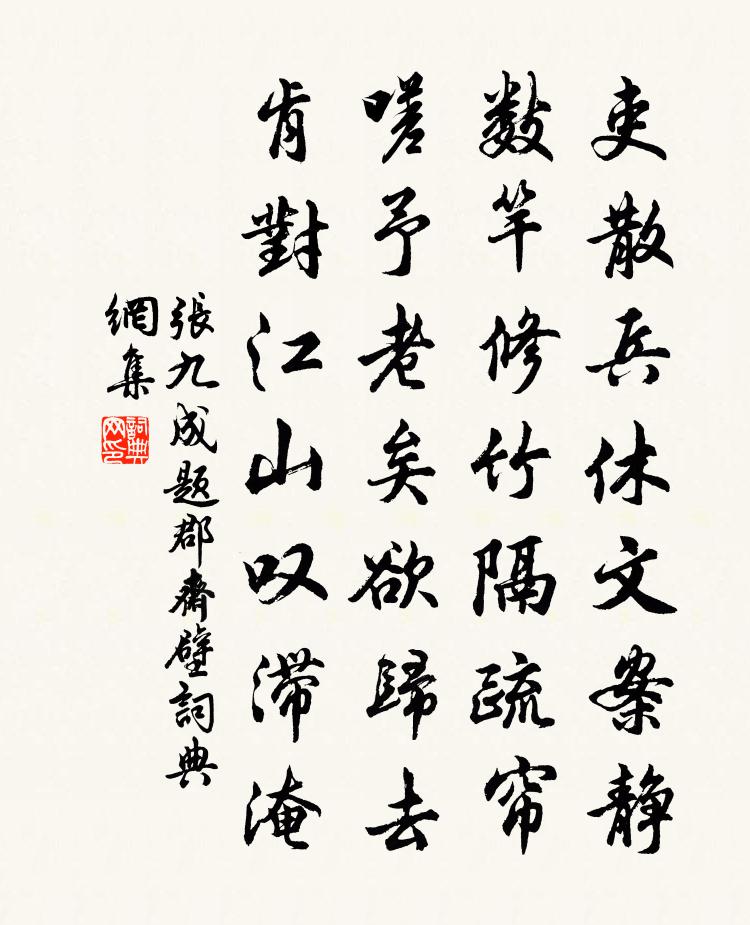 吏散兵休文案静
数竿修竹隔疏帘
嗟予老矣欲歸去
肯對江山叹滞淹
張九成題郡齋壁詞典
網集
詞典
网印